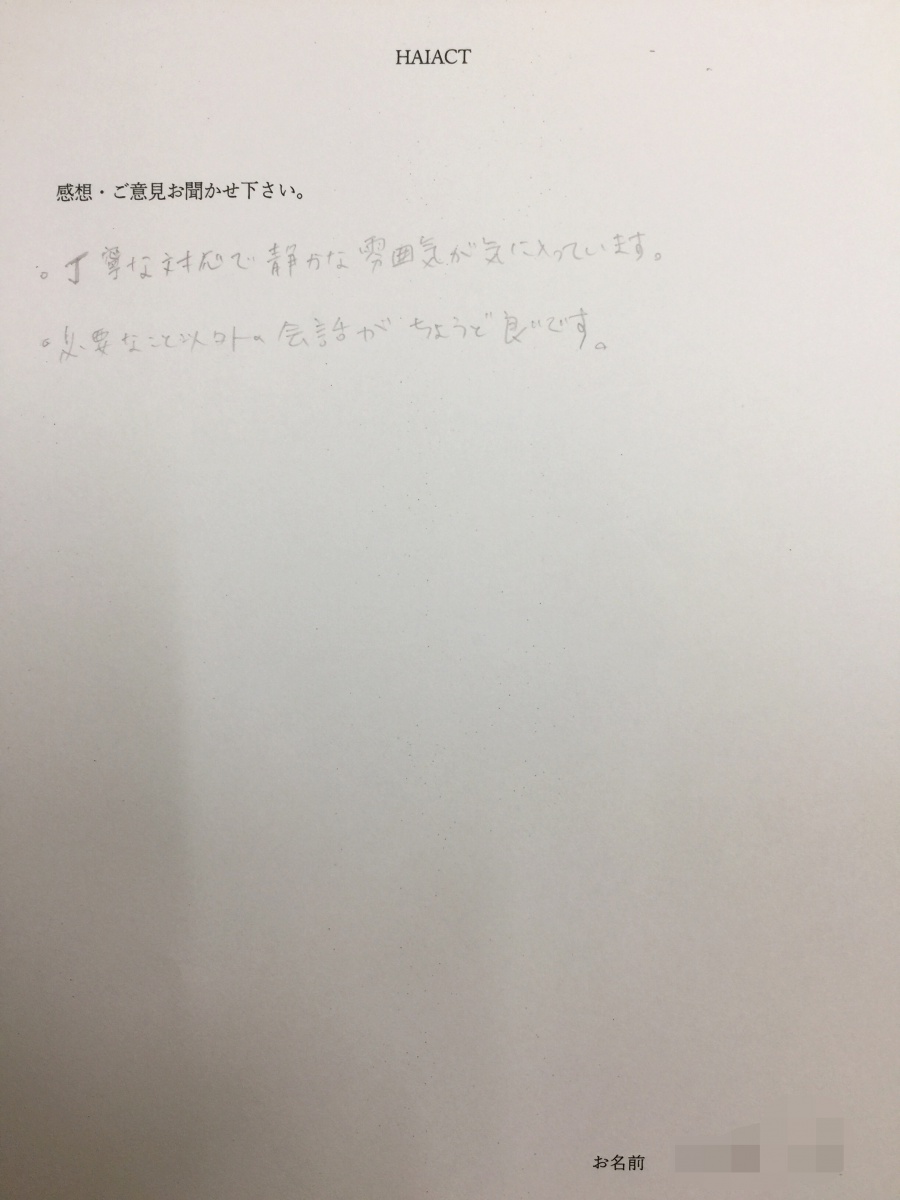 HAIACT
感想・ご意見お聞かせ下さい。
。丁寧な対応で静かな雰囲気が気に入っています。
。必要なこと以外の会話がちょうど良いです。
お名前